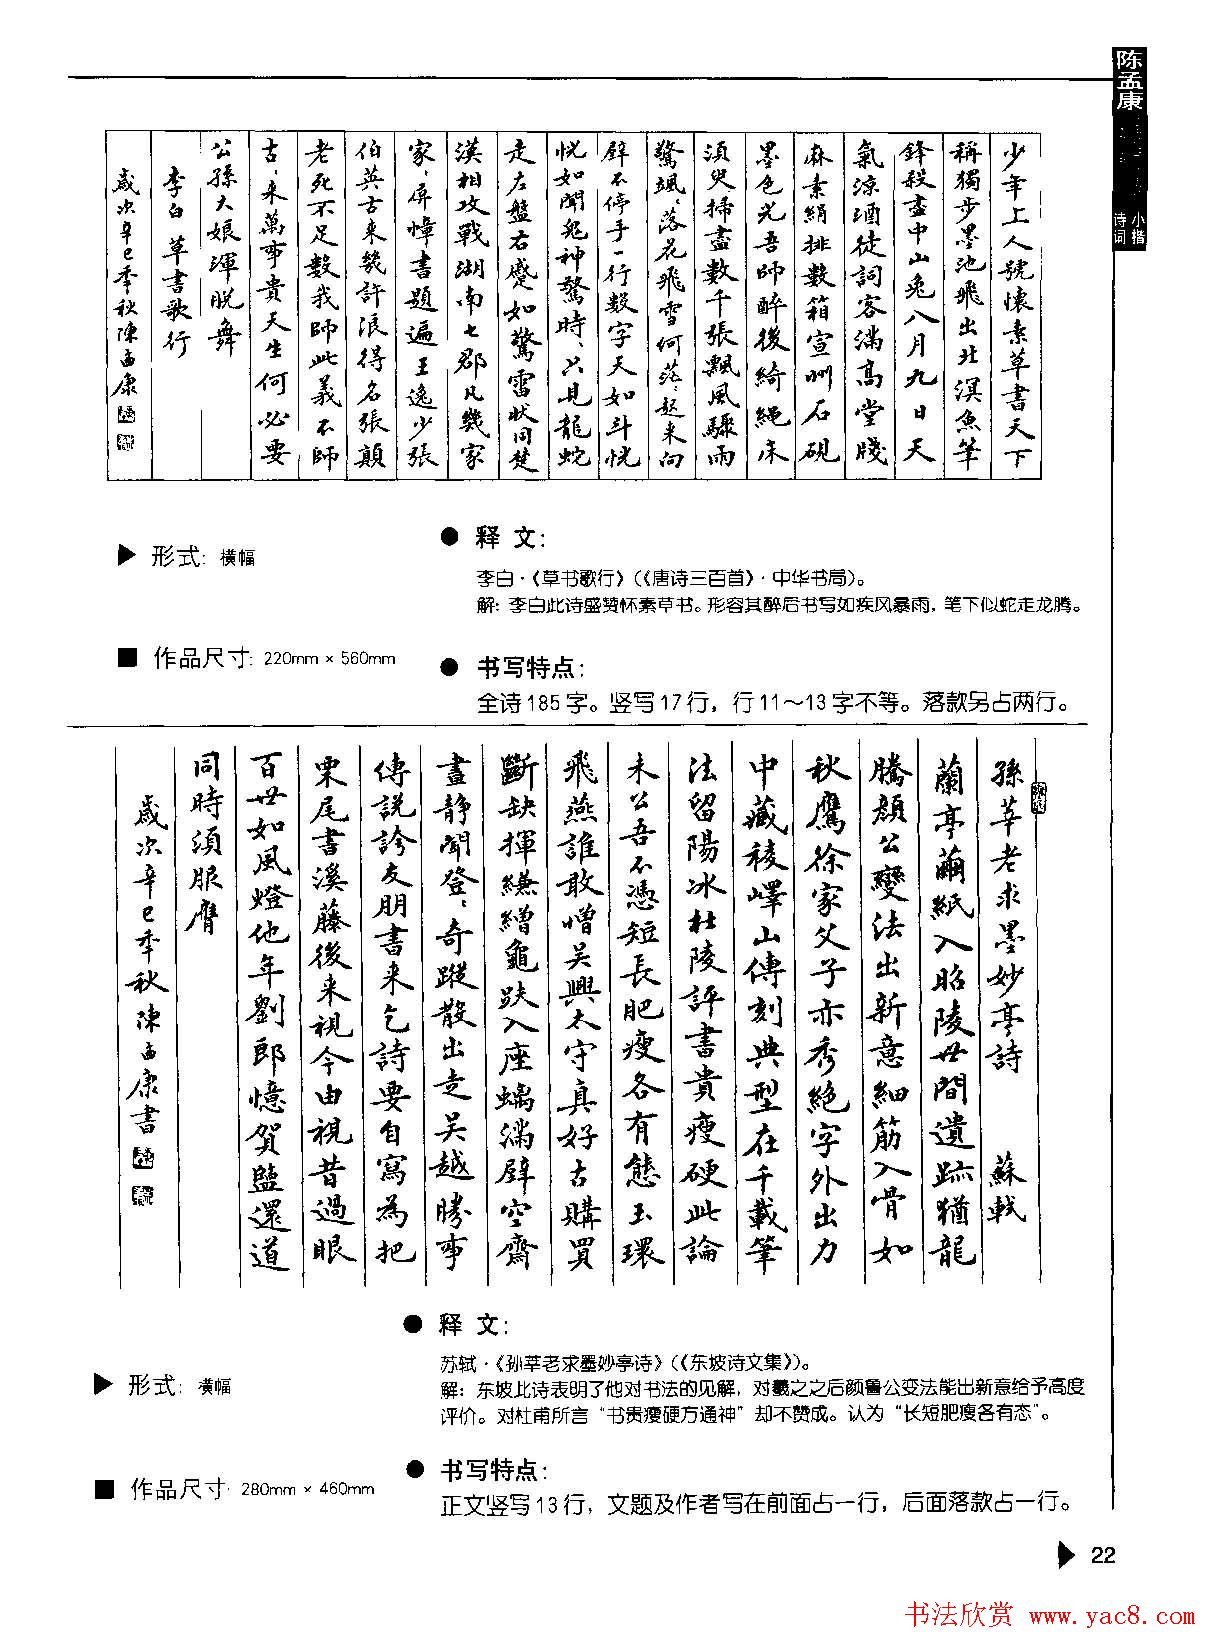 陈孟康
小楷
诗词
少年上人號懷素草書天下
稱獨步墨池飛出北溟魚筆
鋒殺盡中山兔八月九日天
氣涼酒徒詞客滿高堂牋
麻素絹排數箱宣州石硯
墨色光吾師醉後綺繩床
須臾掃盡數千張飄風驟雨
驚颯、落花飛雪何茫、起来向
壁不停手一行数字天如斗恍
恍如聞鬼神驚時、只見龍蛇
走左盤右蹙如驚雷狀同楚
漢相攻戰湖南七郡凡幾家
家、屏幛書題遍王逸少張
伯英古来幾許浪得名張顛
老死不足數我師此義不師
古、来萬事貴天生何必要
公孫大娘渾脱舞
李白 草書歌行
歲次辛巳季秋陳孟康
▶ 形式: 横幅
■ 作品尺寸: 220mm × 560mm
● 释 文:
李白·《草书歌行》(《唐诗三百首》·中华书局)。
解: 李白此诗盛赞怀素草书。形容其醉后书写如疾风暴雨, 笔下似蛇走龙腾。
● 书写特点:
全诗185字。竖写17行, 行11～13字不等。落款另占两行。
孫莘老求墨妙亭詩 蘇軾
蘭亭繭紙入昭陵世間遺跡猶龍
騰顏公變法出新意細筋入骨如
秋鷹徐家父子亦秀絕字外出力
中藏稜嶧山傳刻典型在千載筆
法留陽冰杜陵評書貴瘦硬此論
未公吾不憑短長肥瘦各有態玉環
飛燕誰敢憎吳興太守真好古購買
斷缺揮縑繒龜趺入座螭滿壁空齋
晝静聞登、奇蹤散出走吳越勝事
傳説誇友朋書来乞詩要自寫為把
栗尾書溪藤後来視今由視昔過眼
百世如風燈他年劉郎憶賀監還道
同時須服膺
歲次辛巳季秋陳孟康書
▶ 形式: 横幅
■ 作品尺寸: 280mm × 460mm
● 释 文:
苏轼·《孙莘老求墨妙亭诗》(《东坡诗文集》)。
解: 东坡此诗表明了他对书法的见解, 对羲之之后颜鲁公变法能出新意给予高度
评价。对杜甫所言“书贵瘦硬方通神”却不赞成。认为“长短肥瘦各有态”。
● 书写特点:
正文竖写13行, 文题及作者写在前面占一行, 后面落款占一行。
▶ 22
书法欣赏 www.yac8.com